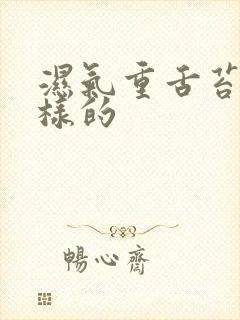 濕氣重舌苔
樣的
暢心齋